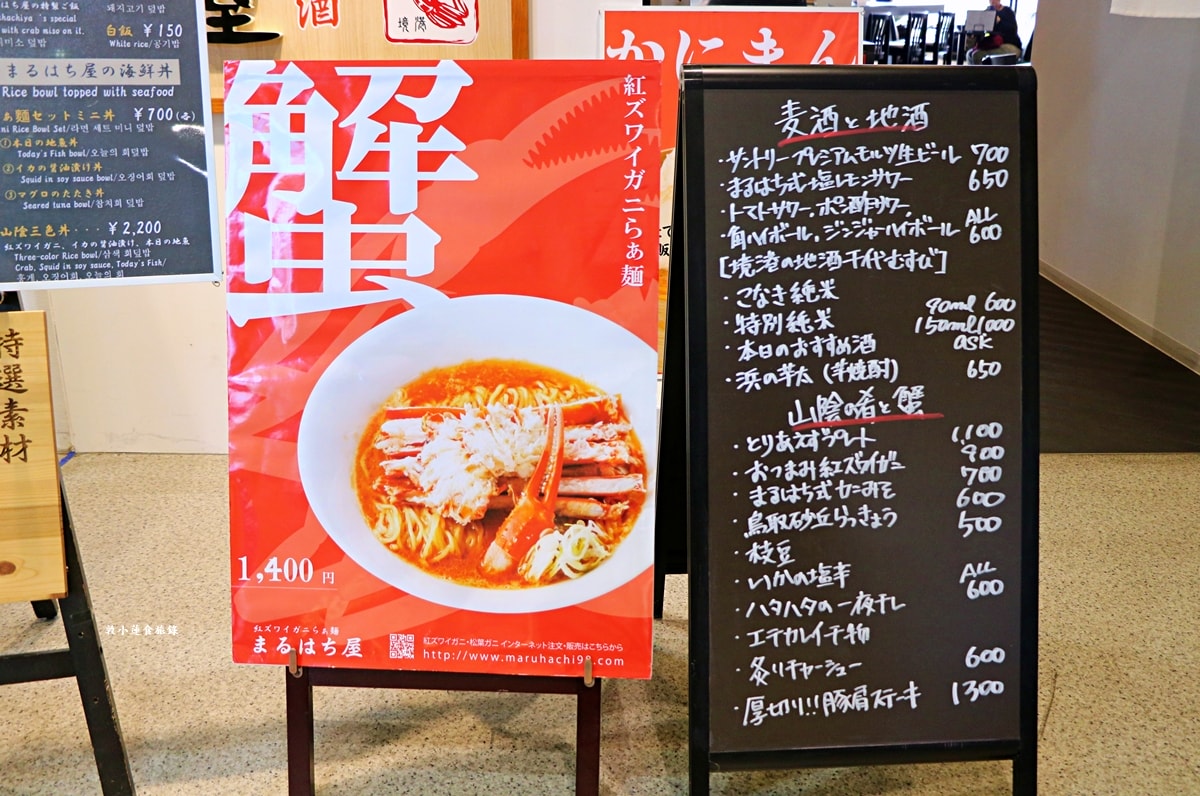 まるはち屋の特製ご飯
돼지고기 덮밥
with crab miso on it.
白飯 ￥150
White rice/공기밥
まるはち屋の海鮮丼
Rice bowl topped with seafood
麺セットミニ丼 ￥700(各)
ni Rice Bowl Set/라면 세트 미니 덮밥
①本日の地魚丼
Today's Fish bowl/오늘의 회덮밥
②イカの醤油漬け丼
Squid in soy sauce bowl/오징어회 덮밥
③マグロのたたき丼
Seared tuna bowl/참치회 덮밥
山陰三色丼・・・￥2,200
紅ズワイガニ、イカの醤油漬け、本日の地魚
Three-color Rice bowl/삼색 회덮밥
Crab, Squid in soy sauce, Today's Fish/
特選素材
酒
境港
かにまん
蟹
紅ズワイガニらぁ麺
1,400円
紅ズワイガニらぁ麺
まるはち屋
紅ズワイガニ・松葉ガニ インターネット注文・販売はこちらから
http://www.maruhachi98.com
麦酒と地酒
・サントリープレミアムモルツ生ビール 700
・まるはち式塩レモンサワー 650
・トマトサワー,ポン酢サワー,
・角ハイボール,ジンジャーハイボール ALL 600
[境港の地酒千代むすび]
・こなき純米
・特別純米 90ml 600 150ml 1000
・本日のおすすめ酒 ASK
・浜の芋太(芋焼酎) 650
山陰の肴と蟹
・とりあえずプレート 1,100
・おつまみ紅ズワイガニ 900
・まるはち式カニみそ 700
・鳥取砂丘らっきょう 600
・枝豆 500
・いかの塩辛
・ハタハタの一夜干し ALL 600
・エテカレイ干物
・炙りチャーシュー 600
・厚切り!!豚肩ステーキ 1300